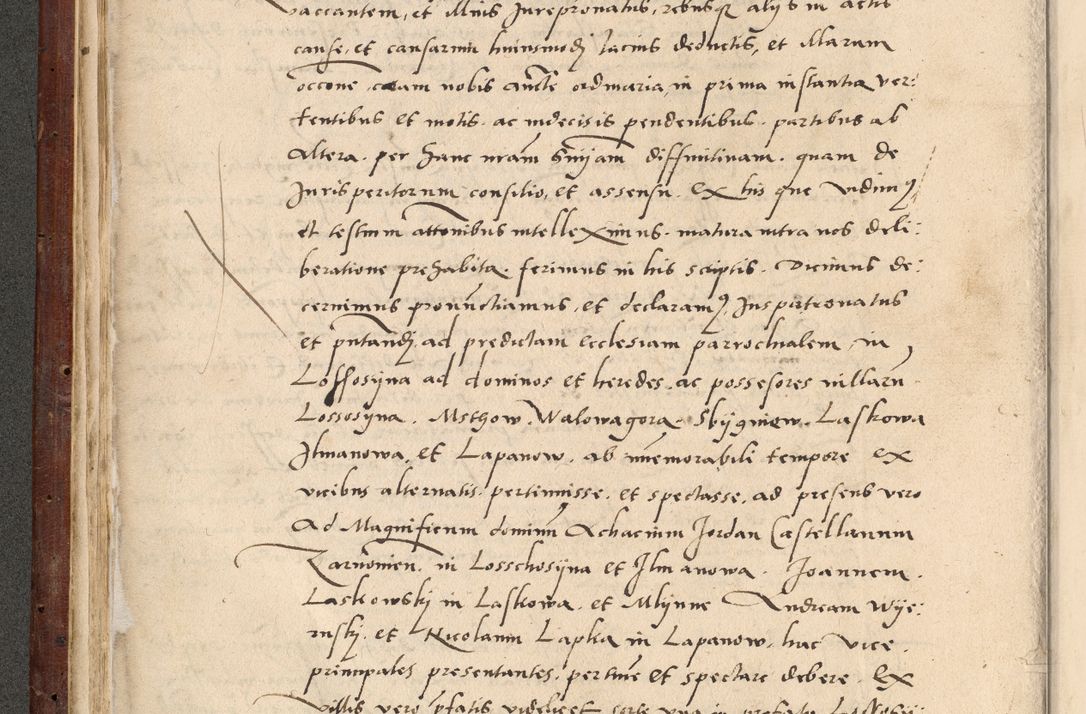 vaccantem, et illius Jurepronatus, rebusq alijs in actis
cause, et causarum huiusmodj lacius deductis, et illarum
occone coram nobis aucte ordinaria in prima instantia ver:
tentibus et motis. ac indecisis pendentibus. partibus ab
altera. per hanc nram Sniam diffinitiuam. quam de
Jurisperitorum consilio, et assensu. Ex his que vidimus
et testium attonibus intelleximus. matura intra nos deli:
beratione prehabita. ferimus in his scriptis. Dicimus de:
cernimus pronunctiamus, et declaramus, Juspatronatus
et pntandj ad predictam ecclesiam parrochialem in
Lossosyna ad dominos et heredes ac possesores villaru
Lossosyna. Msthow. Walowagora Sbygniew. Laskowa
Jlmanowa, et Lapanow. ab immemorabili tempore ex
vicibus alternatis pertinuisse. et spectasse, ad presens vero
Ad Magnificum dominum Achacium Jordan Castellanum
Zarnomen. in Losschosyna et Jlmanowa. Joannem.
Laskowskj in Laskowa. et Mlynne Andream Wye:
ruskj. et Nicolaum Lapka in Lapanow. hac vice.
principales presentantes. pertine et spectare debere. Ex
villis vero pfatis videlicet